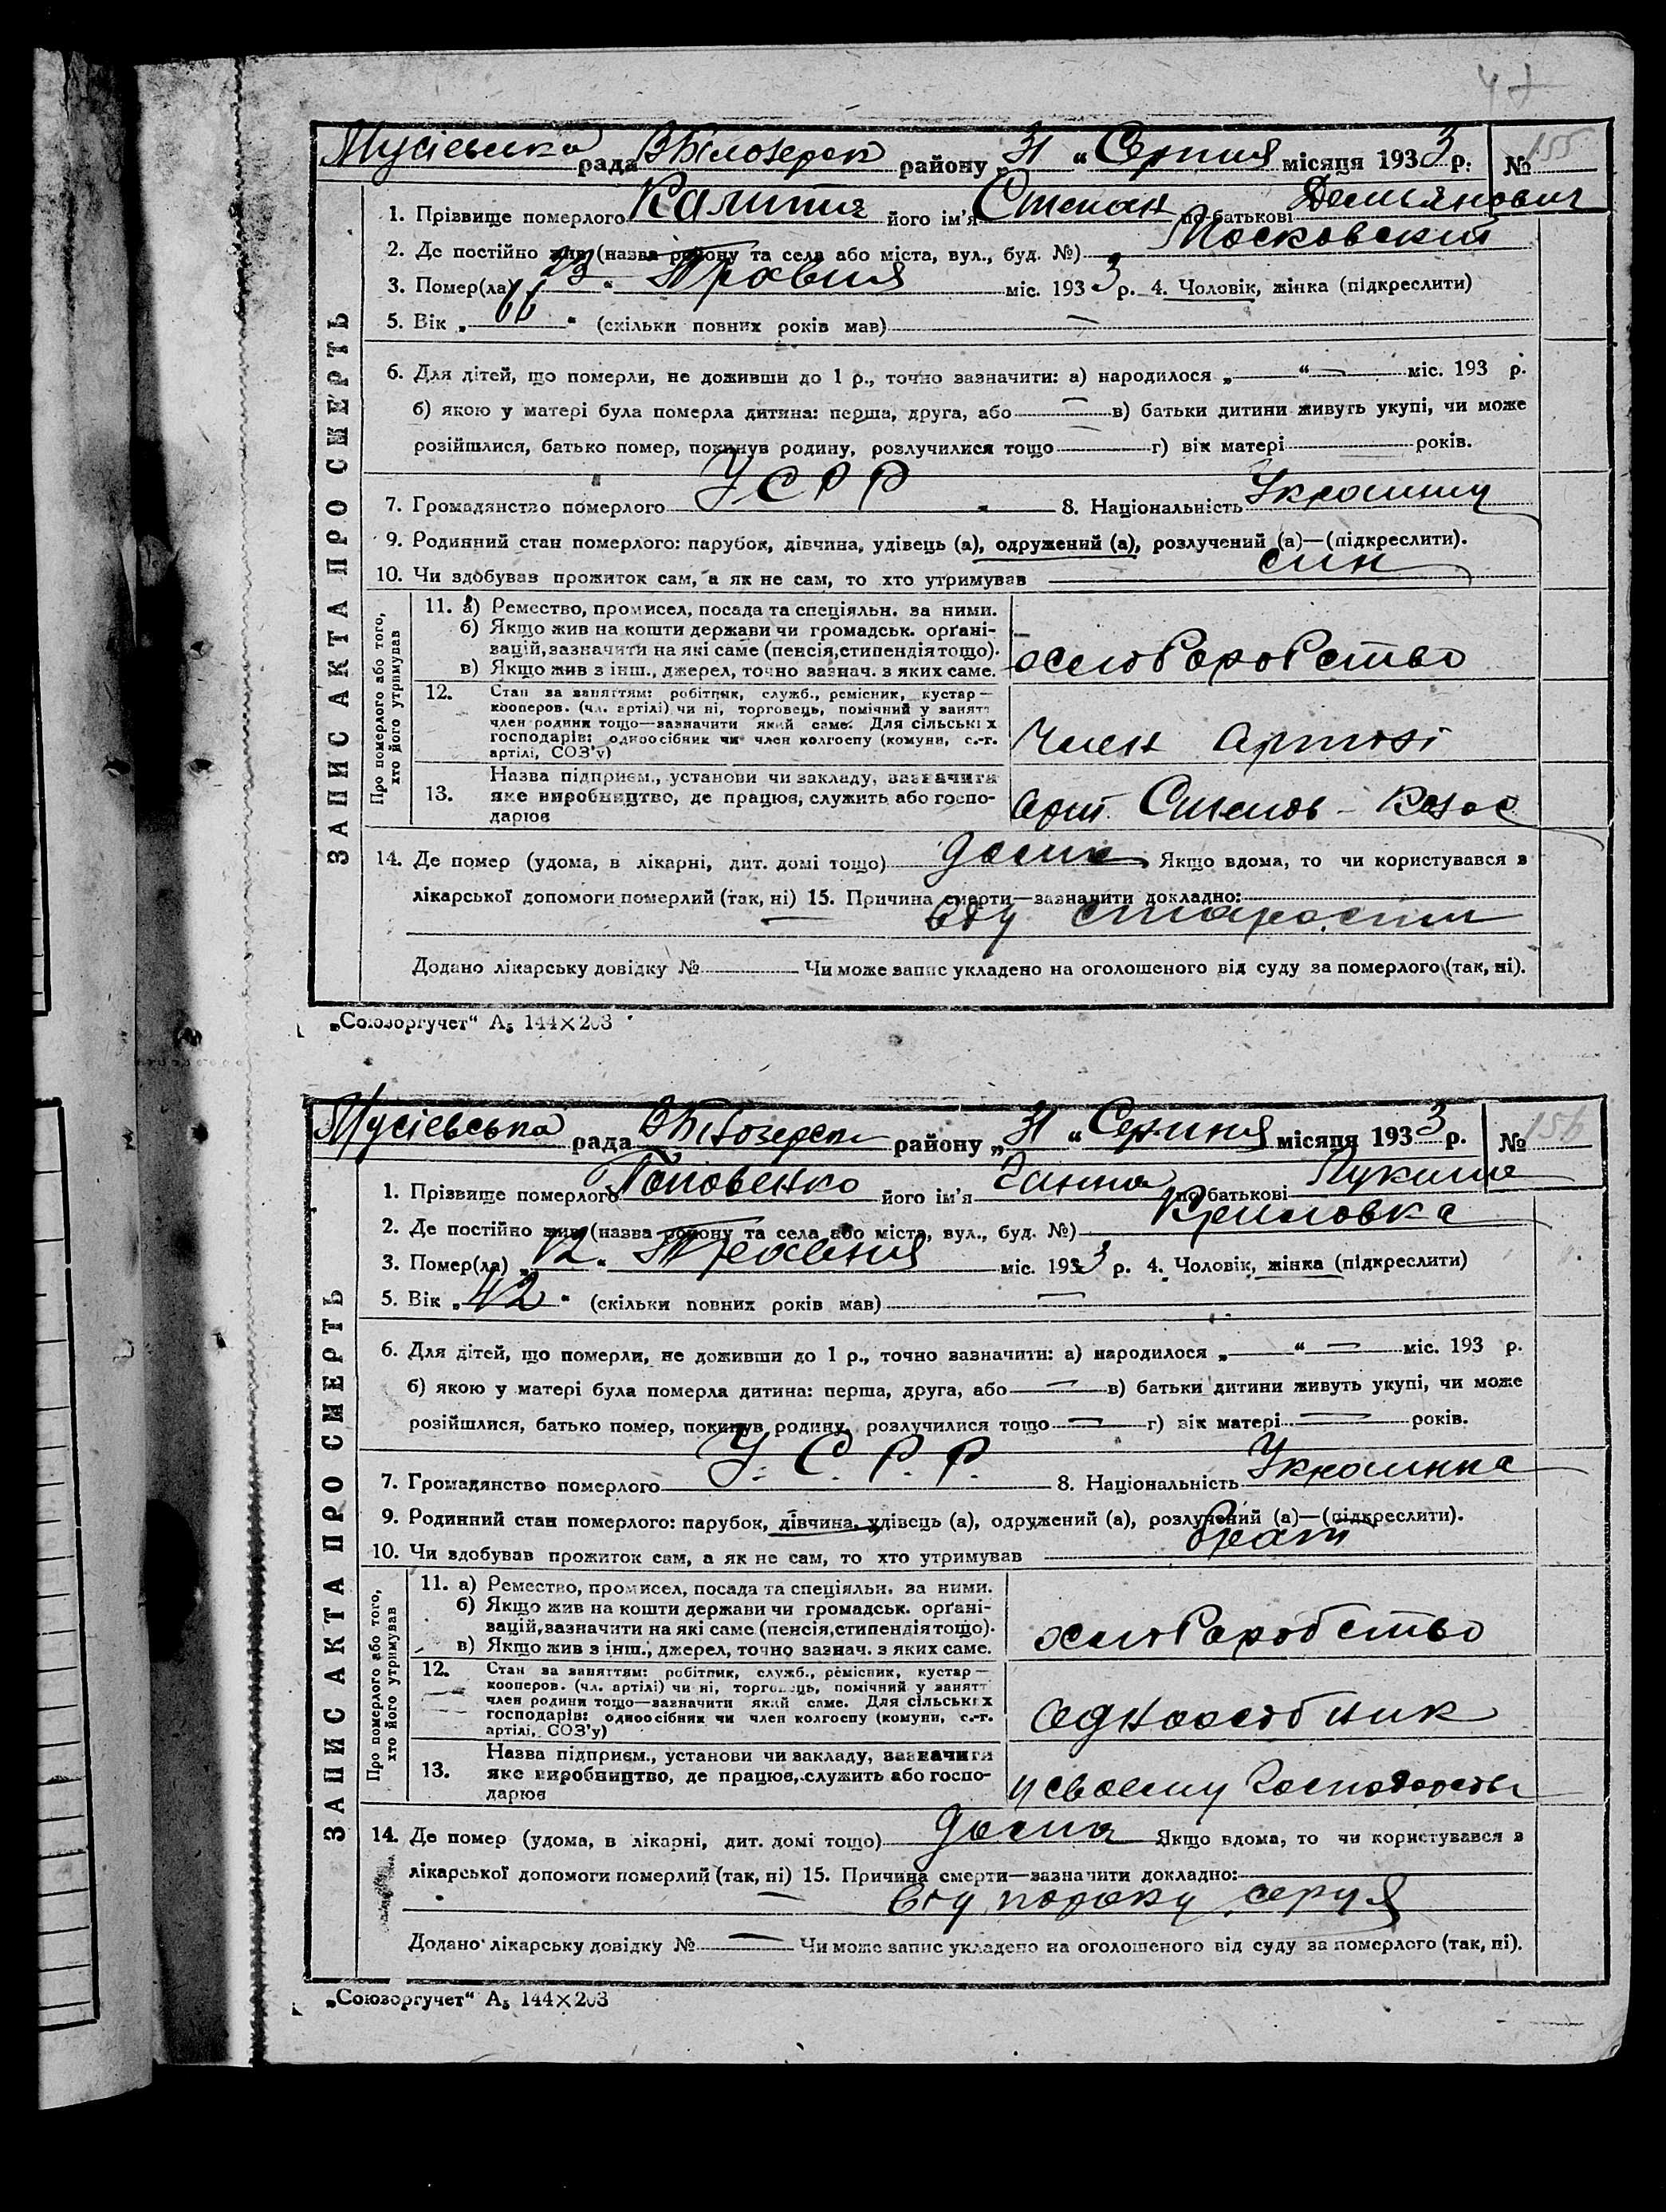 47
Мусієвська рада В Білозерськ району „31" Серпня місяця 1933 р. № 155
1. Прізвище померлого Калитич його ім'я Степан по батькові Демьянович
2. Де постійно жив (назва району та села або міста, вул., буд. №) Московский
3. Помер(ла) 23 " Травня міс. 1933 р. 4. Чоловік, жінка (підкреслити)
5. Вік „ 66 " (скільки повних років мав) —
6. Для дітей, що померли, не доживши до 1 р., точно зазначити: а) народилося „— " — міс. 193 р.
б) якою у матері була померла дитина: перша, друга, або — в) батьки дитини живуть укупі, чи може
розійшлися, батько помер, покинув родину, розлучилися тощо г) вік матері років.
7. Громадянство померлого УСРР 8. Національність Украинец
9. Родинний стан померлого: парубок, дівчина, удівець (а), одружений (а), розлучений (а)—(підкреслити).
10. Чи здобував прожиток сам, а як не сам, то хто утримував син
ЗАПИС АКТА ПРО СМЕРТЬ
Про померлого або того, хто його утримував
11. а) Ремество, промисел, посада та спеціяльн. за ними.
б) Якщо жив на кошти держави чи громадськ. орґані-
зацій, зазначити на які саме (пенсія, стипендія тощо).
в) Якщо жив з інш., джерел, точно зазнач. з яких саме.
хлоборобство
12. Стан за заняттям: робітник, служб., ремісник, кустар—
кооперов. (чл. артілі) чи ні, торговець, помічний у занятт
член родини тощо—зазначити який саме. Для сільських
господарів: одноосібник чи член колгоспу (комуни, с.-г.
артілі, СОЗ'у)
Член Артілі
13. Назва підприєм., установи чи закладу, зазначити
яке виробництво, де працює, служить або госпо-
дарює
Арт. Степов-
14. Де помер (удома, в лікарні, дит. домі тощо) дома Якщо вдома, то чи користувався з
лікарської допомоги померлий (так, ні) 15. Причина смерти—зазначити докладно:
— від старости
Додано лікарську довідку № Чи може запис укладено на оголошеного від суду за померлого (так, ні).
„Союзоргучет" А₅ 144×203
Мусієвська рада В Білозерськ району „31" Серпня місяця 1933 р. № 156
1. Прізвище померлого Поповенко його ім'я Ганна по батькові Лукична
2. Де постійно жив (назва району та села або міста, вул., буд. №) Крыловка
3. Помер(ла) „12" Травня міс. 1933 р. 4. Чоловік, жінка (підкреслити)
5. Вік „ 42 " (скільки повних років мав) —
6. Для дітей, що померли, не доживши до 1 р., точно зазначити: а) народилося „— " — міс. 193 р.
б) якою у матері була померла дитина: перша, друга, або — в) батьки дитини живуть укупі, чи може
розійшлися, батько помер, покинув родину, розлучилися тощо — г) вік матері — років.
7. Громадянство померлого У. С. Р. Р. 8. Національність Украинка
9. Родинний стан померлого: парубок, дівчина, удівець (а), одружений (а), розлучений (а)—(підкреслити).
10. Чи здобував прожиток сам, а як не сам, то хто утримував брат
ЗАПИС АКТА ПРО СМЕРТЬ
Про померлого або того, хто його утримував
11. а) Ремество, промисел, посада та спеціяльн. за ними.
б) Якщо жив на кошти держави чи громадськ. орґані-
зацій, зазначити на які саме (пенсія, стипендія тощо).
в) Якщо жив з інш., джерел, точно зазнач. з яких саме.
хлоборобство
12. Стан за заняттям: робітник, служб., ремісник, кустар—
кооперов. (чл. артілі) чи ні, торговець, помічний у занятт
член родини тощо—зазначити який саме. Для сільських
господарів: одноосібник чи член колгоспу (комуни, с.-г.
артілі, СОЗ'у)
Одноособник
13. Назва підприєм., установи чи закладу, зазначити
яке виробництво, де працює, служить або госпо-
дарює
у своему господарстві
14. Де помер (удома, в лікарні, дит. домі тощо) Дома Якщо вдома, то чи користувався з
лікарської допомоги померлий (так, ні) 15. Причина смерти—зазначити докладно:
— від пороку серця
Додано лікарську довідку № — Чи може запис укладено на оголошеного від суду за померлого (так, ні).
„Союзоргучет" А₅ 144×203